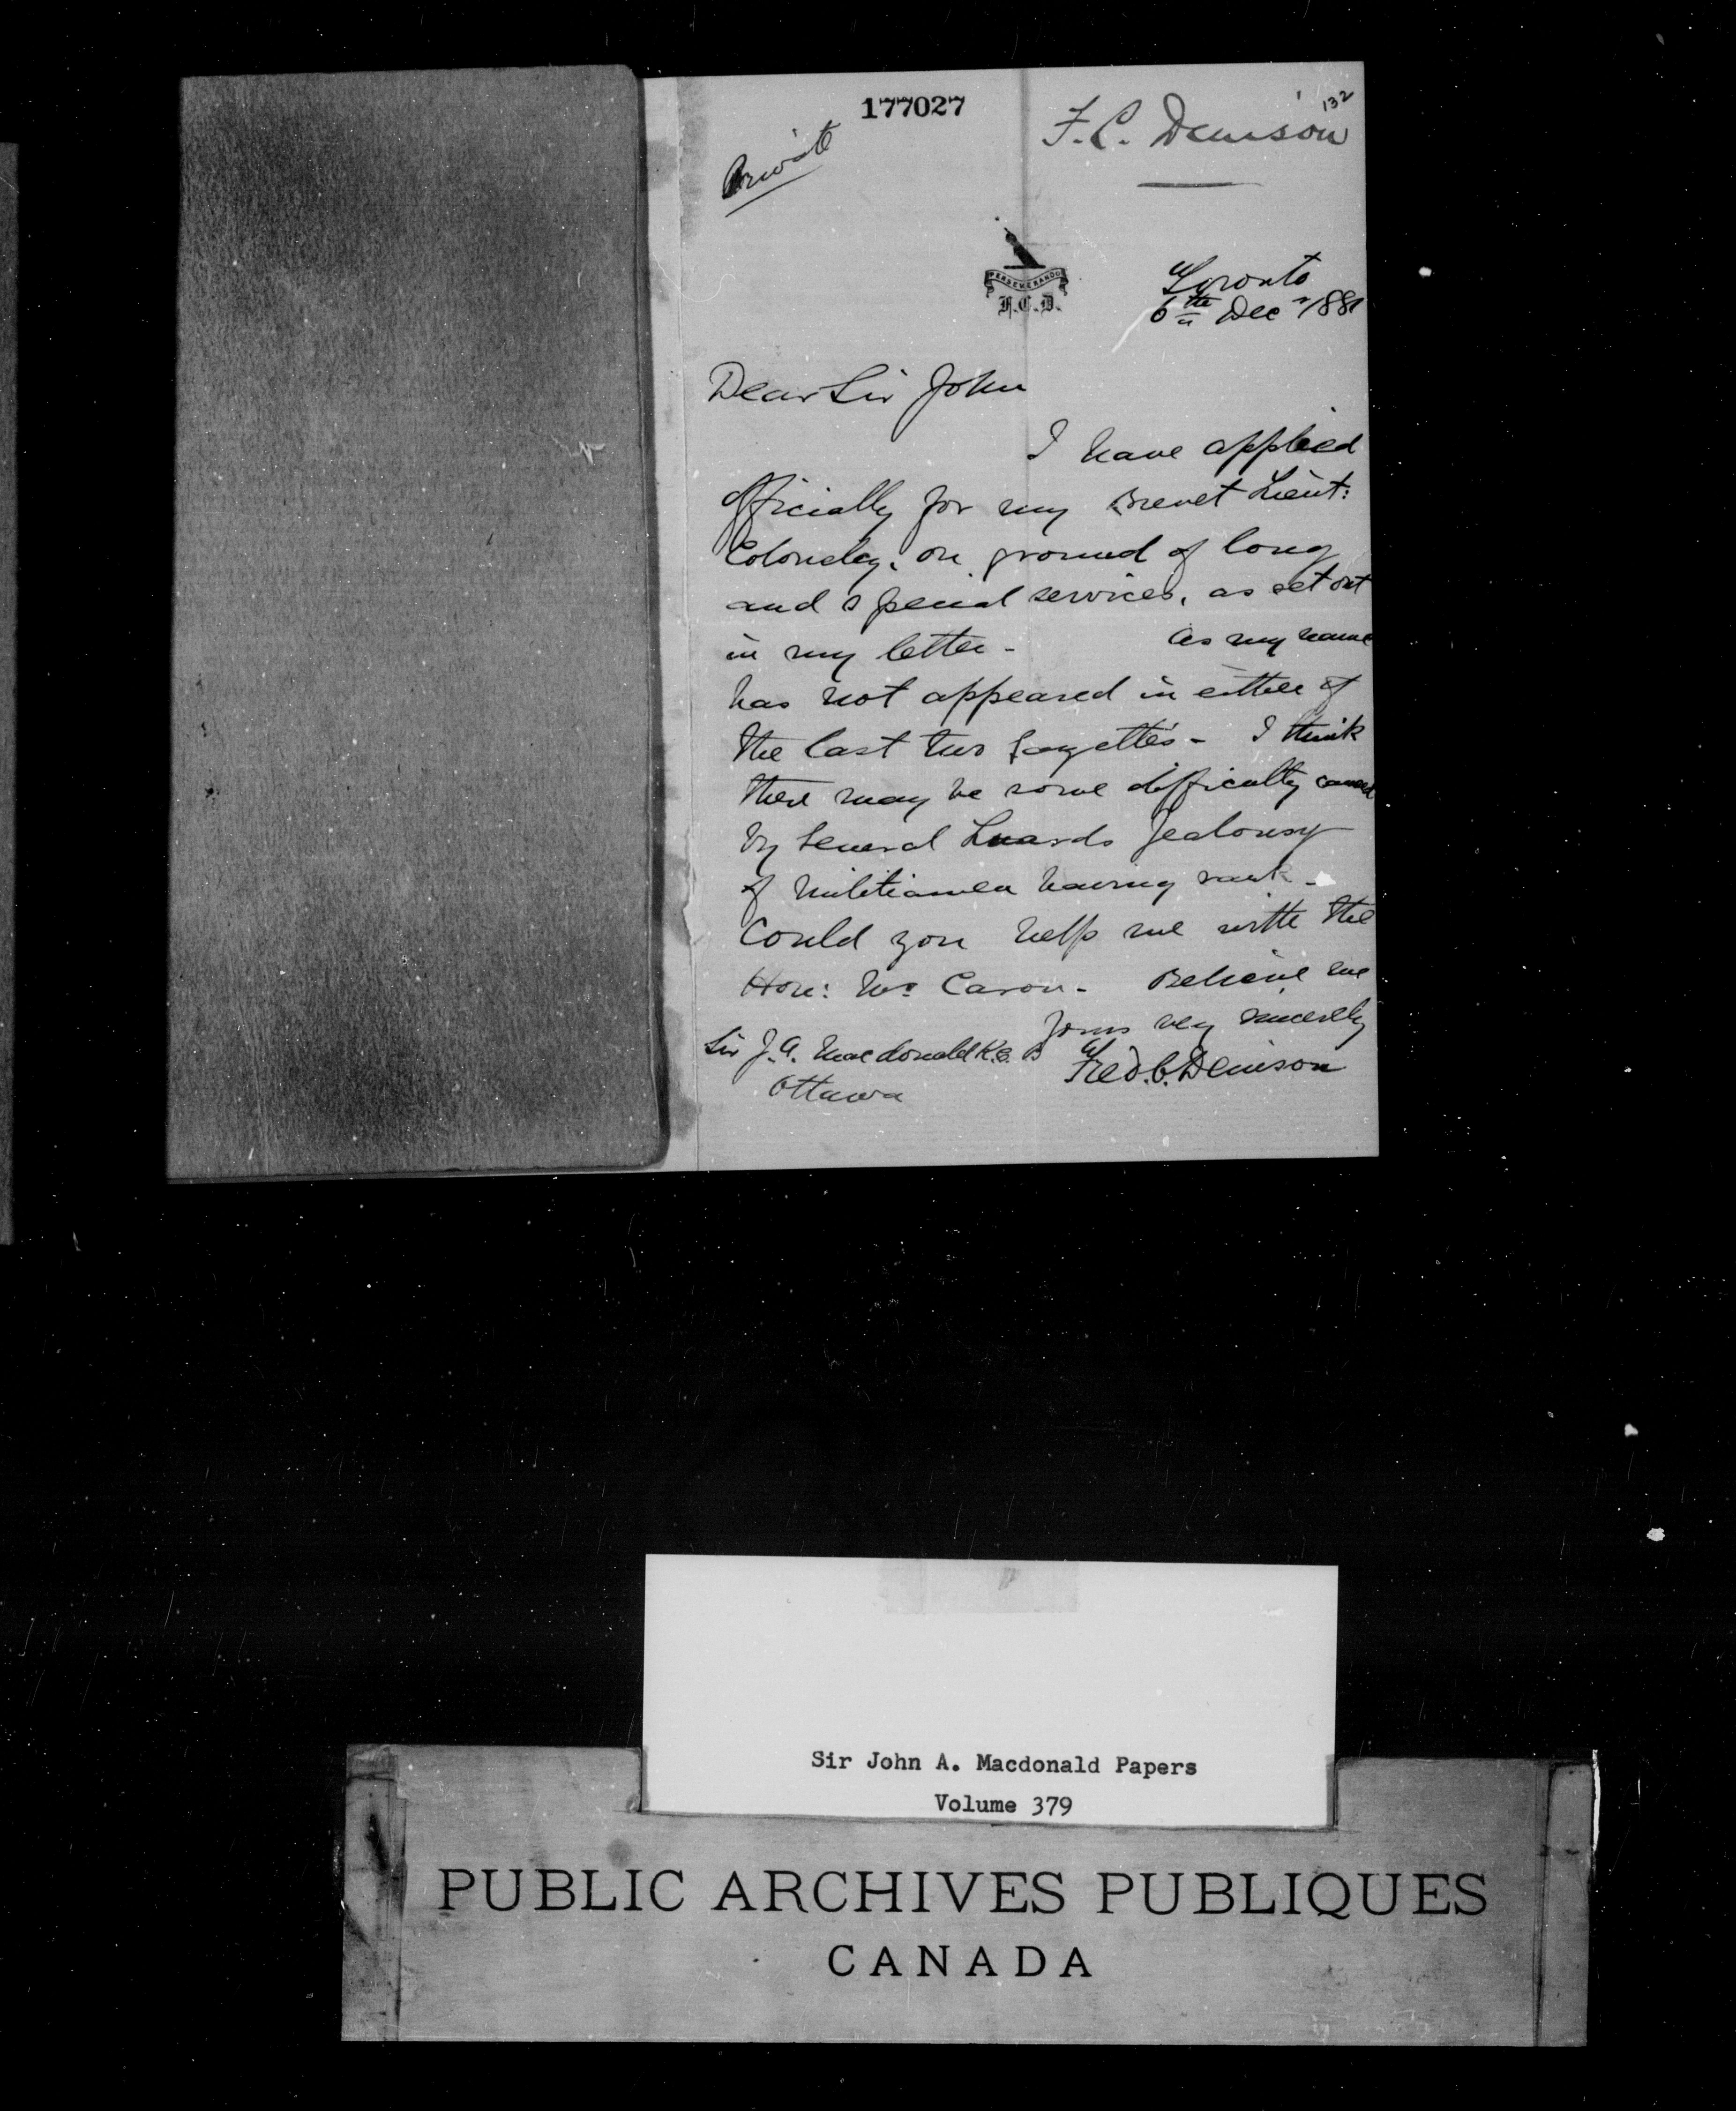 177027
132
F. C. Denison
Private
PERSEVERANDO
F.C.D.
Toronto
6th Decr 1881
Dear Sir John
I have applied
officially for my Brevet Lieut:
Colonelcy, on ground of long
and special services, as set out
in my letter - As my name
has not appeared in either of
the last two Gazettes - I think
there may be some difficulty caused
by General Luards jealousy
of Militiamen having rank -
Could you help me with the
Hon: Mr Caron - Believe me
Yours very sincerely
Fred. C. Denison
Sir J. A. Macdonald K.C.B
Ottawa
Sir John A. Macdonald Papers
Volume 379
PUBLIC ARCHIVES PUBLIQUES
CANADA